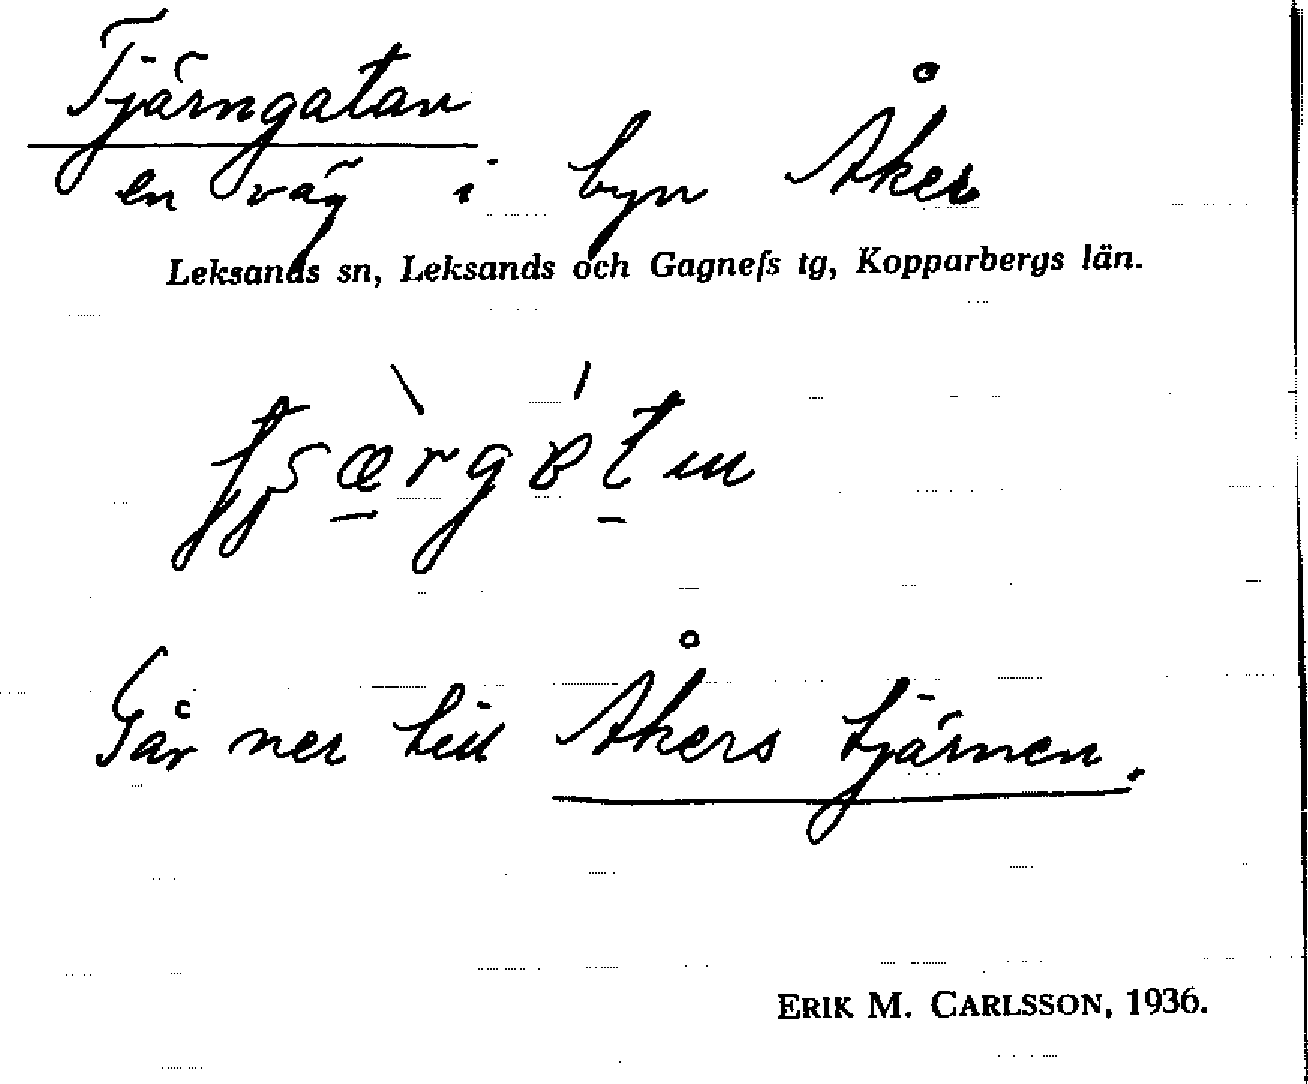 Tjärngatan
en väg i byn Åker
Leksands sn, Leksands och Gagnefs tg, Kopparbergs län.
Går ner till Åkers tjärnen.
ERIK M. CARLSSON, 1936.